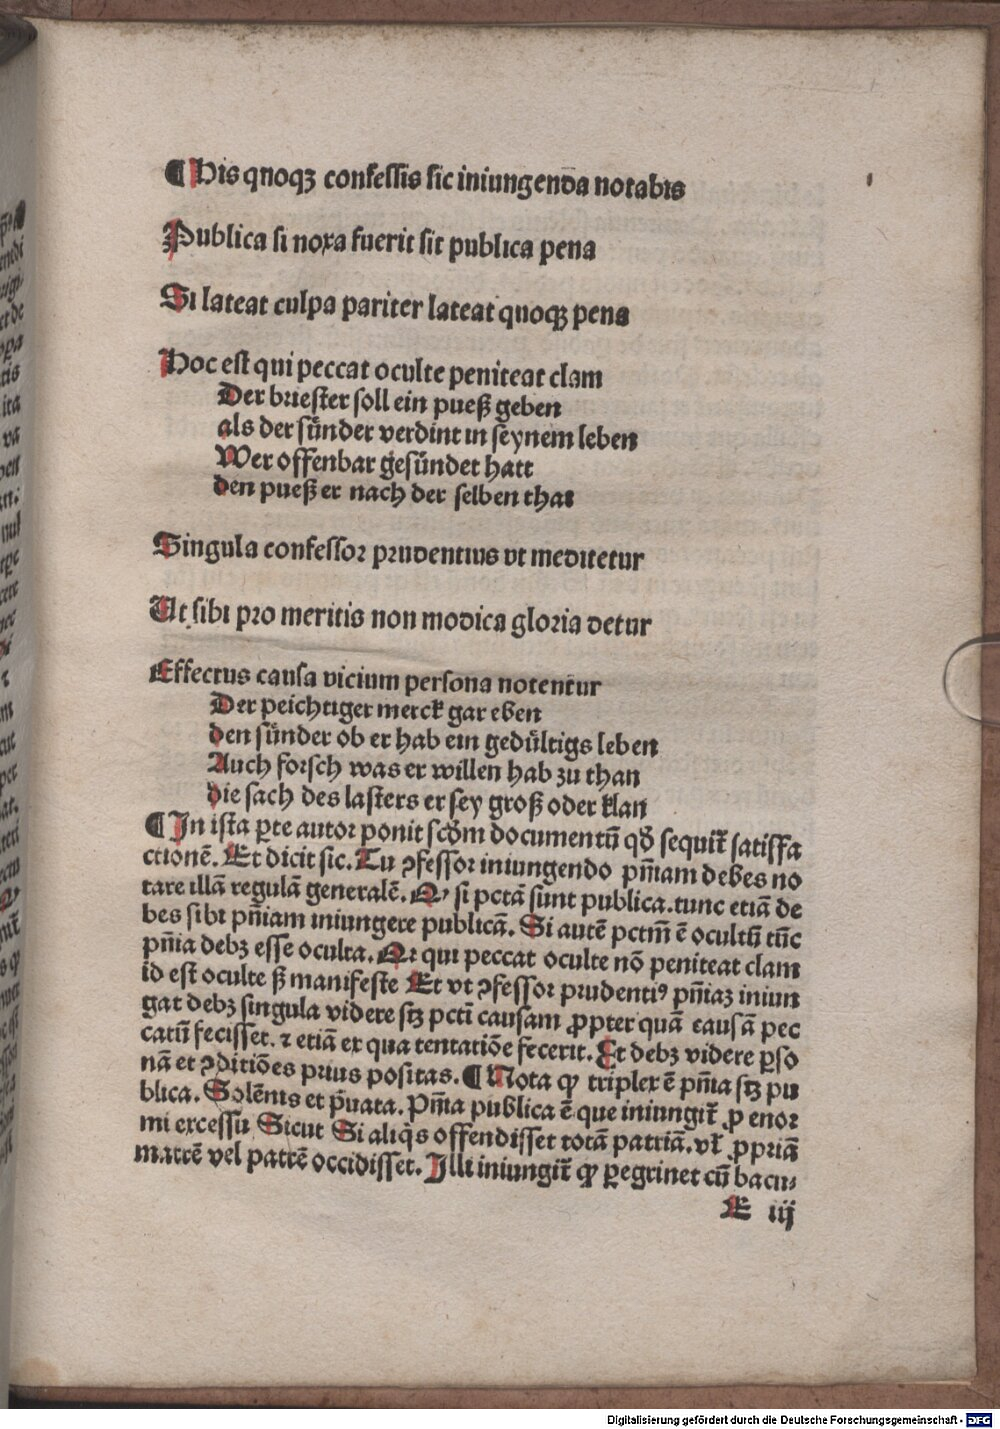 ¶ His qnoqꝫ confessis sic iniungenda notabis
Publica si noxa fuerit sit publica pena
Si lateat culpa pariter lateat quoqꝫ pena
Hoc est qui peccat oculte peniteat clam
Der briester soll ein pueß geben
als der sünder verdint in seynem leben
Wer offenbar gesündet hatt
den pueß er nach der selben that
Singula confessor prudentius vt meditetur
Ut sibi pro meritis non modica gloria detur
Effectus causa vicium persona notentur
Der peichtiger merck gar eben
den sünder ob er hab ein gedültigs leben
Auch forsch was er willen hab zu than
die sach des lasters er sey groß oder klan
¶ In ista ꝑte autor ponit scd̓m documentū qd̓ sequit̄ satisffa
ctionē. Et dicit sic. Tu ꝯfessor iniungendo pn̄iam debes no
tare illā regulā generalē. Qꝫ si pctā sunt publica. tunc etiā de
bes sibi pn̄iam iniungere publicā. Si autē pctm̄ ē ocultū tūc
pn̄ia debꝫ esse oculta. Qꝫ qui peccat oculte nō peniteat clam
id est oculte ß manifeste Et vt ꝯfessor prudentiꝰ pn̄iaꝫ iniun
gat debꝫ singula videre stꝫ pcti causam ꝓpter quā causā pec
catū fecisset. ⁊ etiā ex qua tentatiōe fecerit. Et debꝫ videre ꝑso
nā et ꝯditiōes prius positas. ¶ Nota ꝙ triplex ē pn̄ia stꝫ pu
blica. Solēnis et p̄uata. Pn̄ia publica ē que iniungit̄ ꝓ enor
mi excessu Sicut Si aliq̇s offendisset totā patriā. vl̄ ꝓpriā
matrē vel patrē occidisset. Illi iniungit̄ ꝙ ꝑegrinet cū bacu⸗
E iij
Digitalisierung gefördert durch die Deutsche Forschungsgemeinschaft - DFG